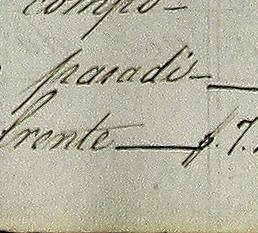 compo-
paradi-
frente f. 7.